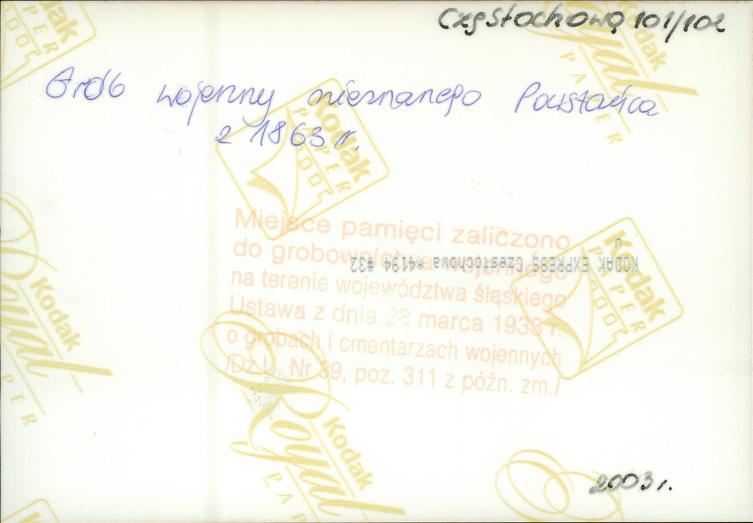 Częstochowa 101/102
Grób wojenny nieznanego Powstańca
z 1863 r.
Miejsce pamięci zaliczono
do grobownictwa wojennego
KODAK EXPRESS Czestochowa *4194 #32
na terenie województwa śląskiego
Ustawa z dnia 28 marca 1933 r.
o grobach i cmentarzach wojennych
/Dz.U. Nr 39, poz. 311 z późn. zm./
2003 r.
Kodak
Royal
PAPER
Kodak
PAPER
Kodak
Royal
PAPER
Kodak
PAPER
Kodak
Royal
PAPER
Kodak